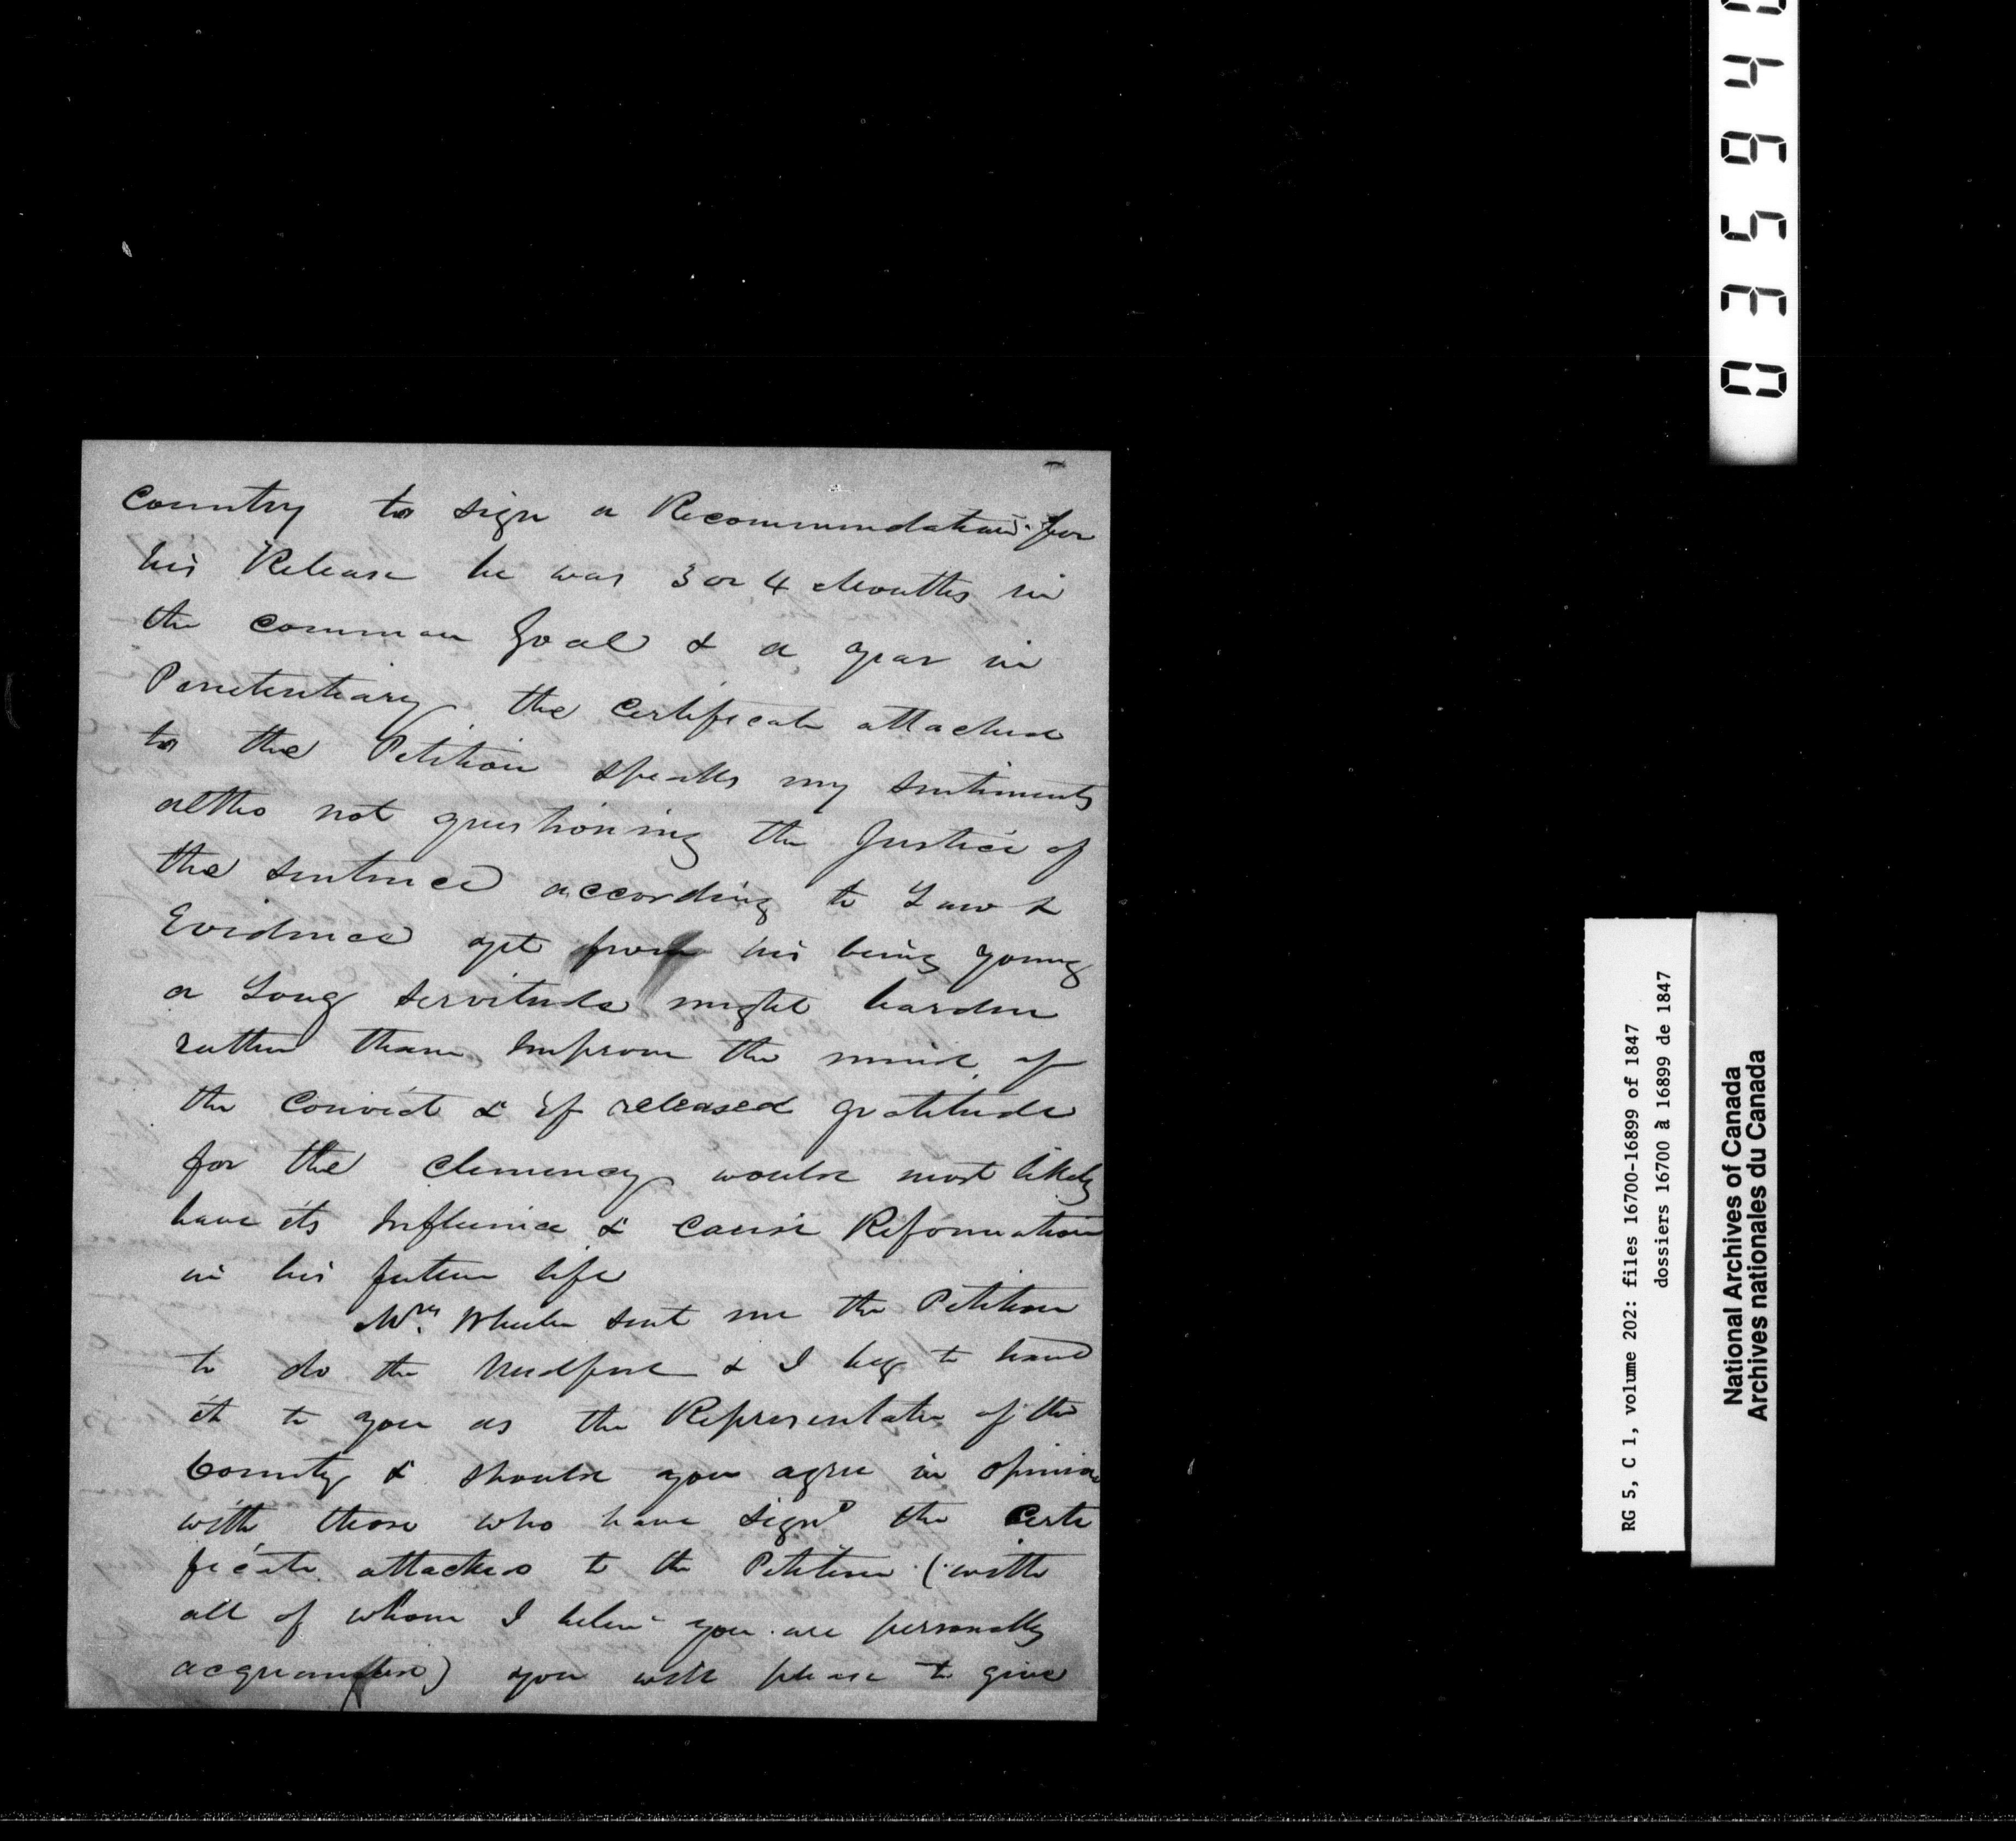 Country to sign a Recommendation for
his Release he was 3 or 4 Months in
the common Goal & a year in
Penetentiary the Certificate attached
to the Petition speaks my sentiments
altho not questioning the Justice of
the sentence according to Law &
Evidence yet from his being young
a Long servitude might harden
rather than Improve the mind of
the Convict & If released gratitude
for the Clemency would most likely
have its Influence & Cause Reformation
in his future life
Mrs. Wheeler sent me the Petition
to do the needful & I beg to hand
it to you as the Representative of the
County & should you agree in opinion
with those who have signd the Certi
ficate attached to the Petition (with
all of whom I believe you are personally
acquainted) you will please to give
034640
RG 5, C 1, volume 202: files 16700-16899 of 1847
dossiers 16700 à 16899 de 1847
National Archives of Canada
Archives nationales du Canada